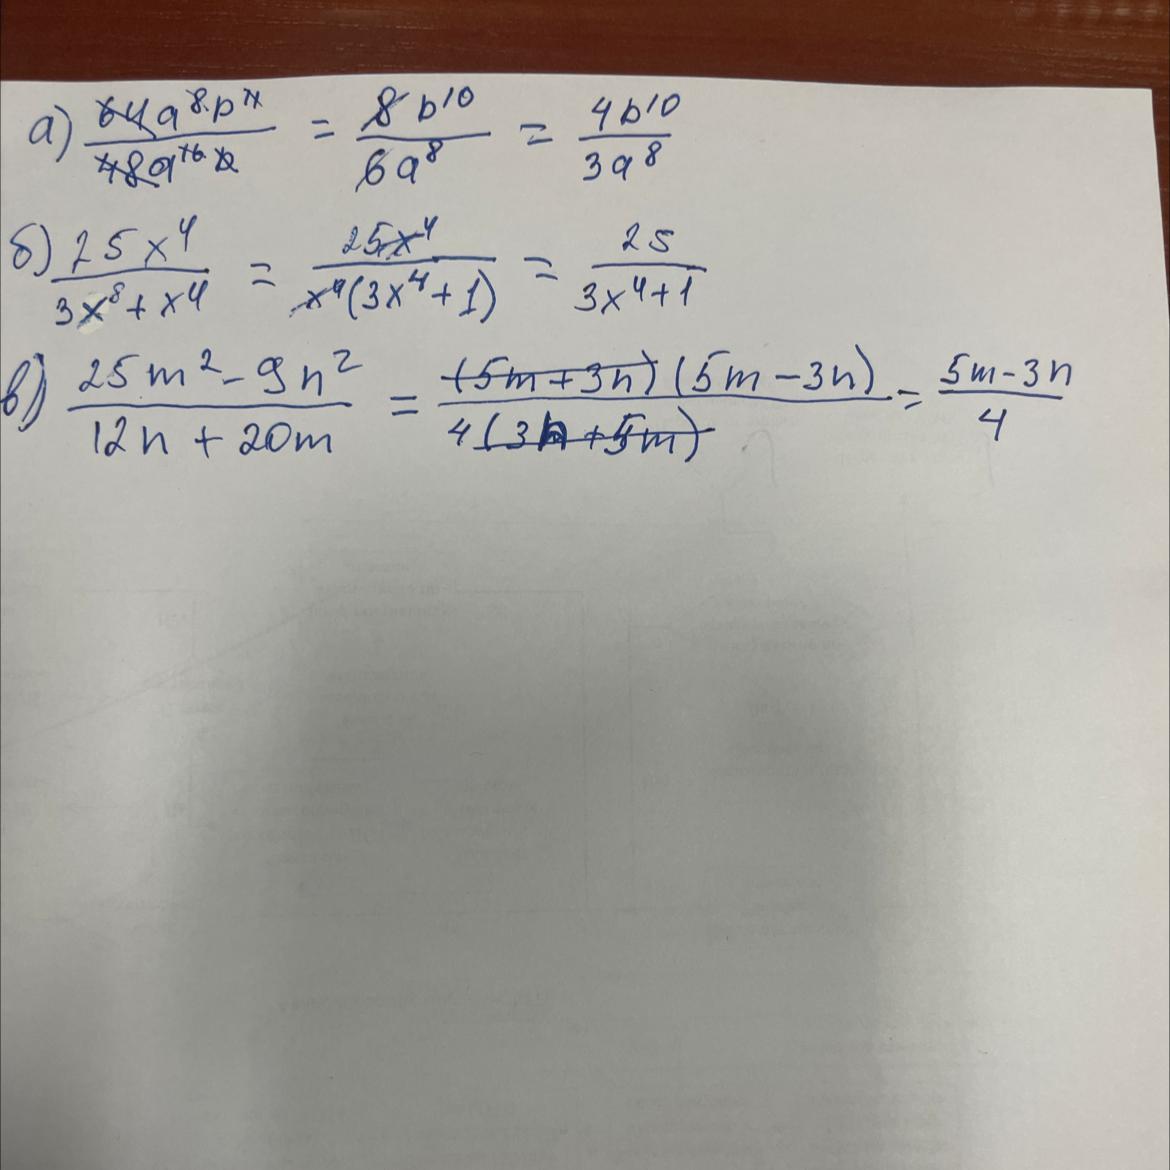 а) 64a⁸·b¹¹ / 48a¹⁶b = 8b¹⁰ / 6a⁸ = 4b¹⁰ / 3a⁸
б) 25x⁴ / 3x⁸ + x⁴ = 25x⁴ / x⁴(3x⁴ + 1) = 25 / 3x⁴+1
в) 25m² - 9n² / 12n + 20m = (5m + 3n)(5m - 3n) / 4(3n + 5m) = 5m - 3n / 4